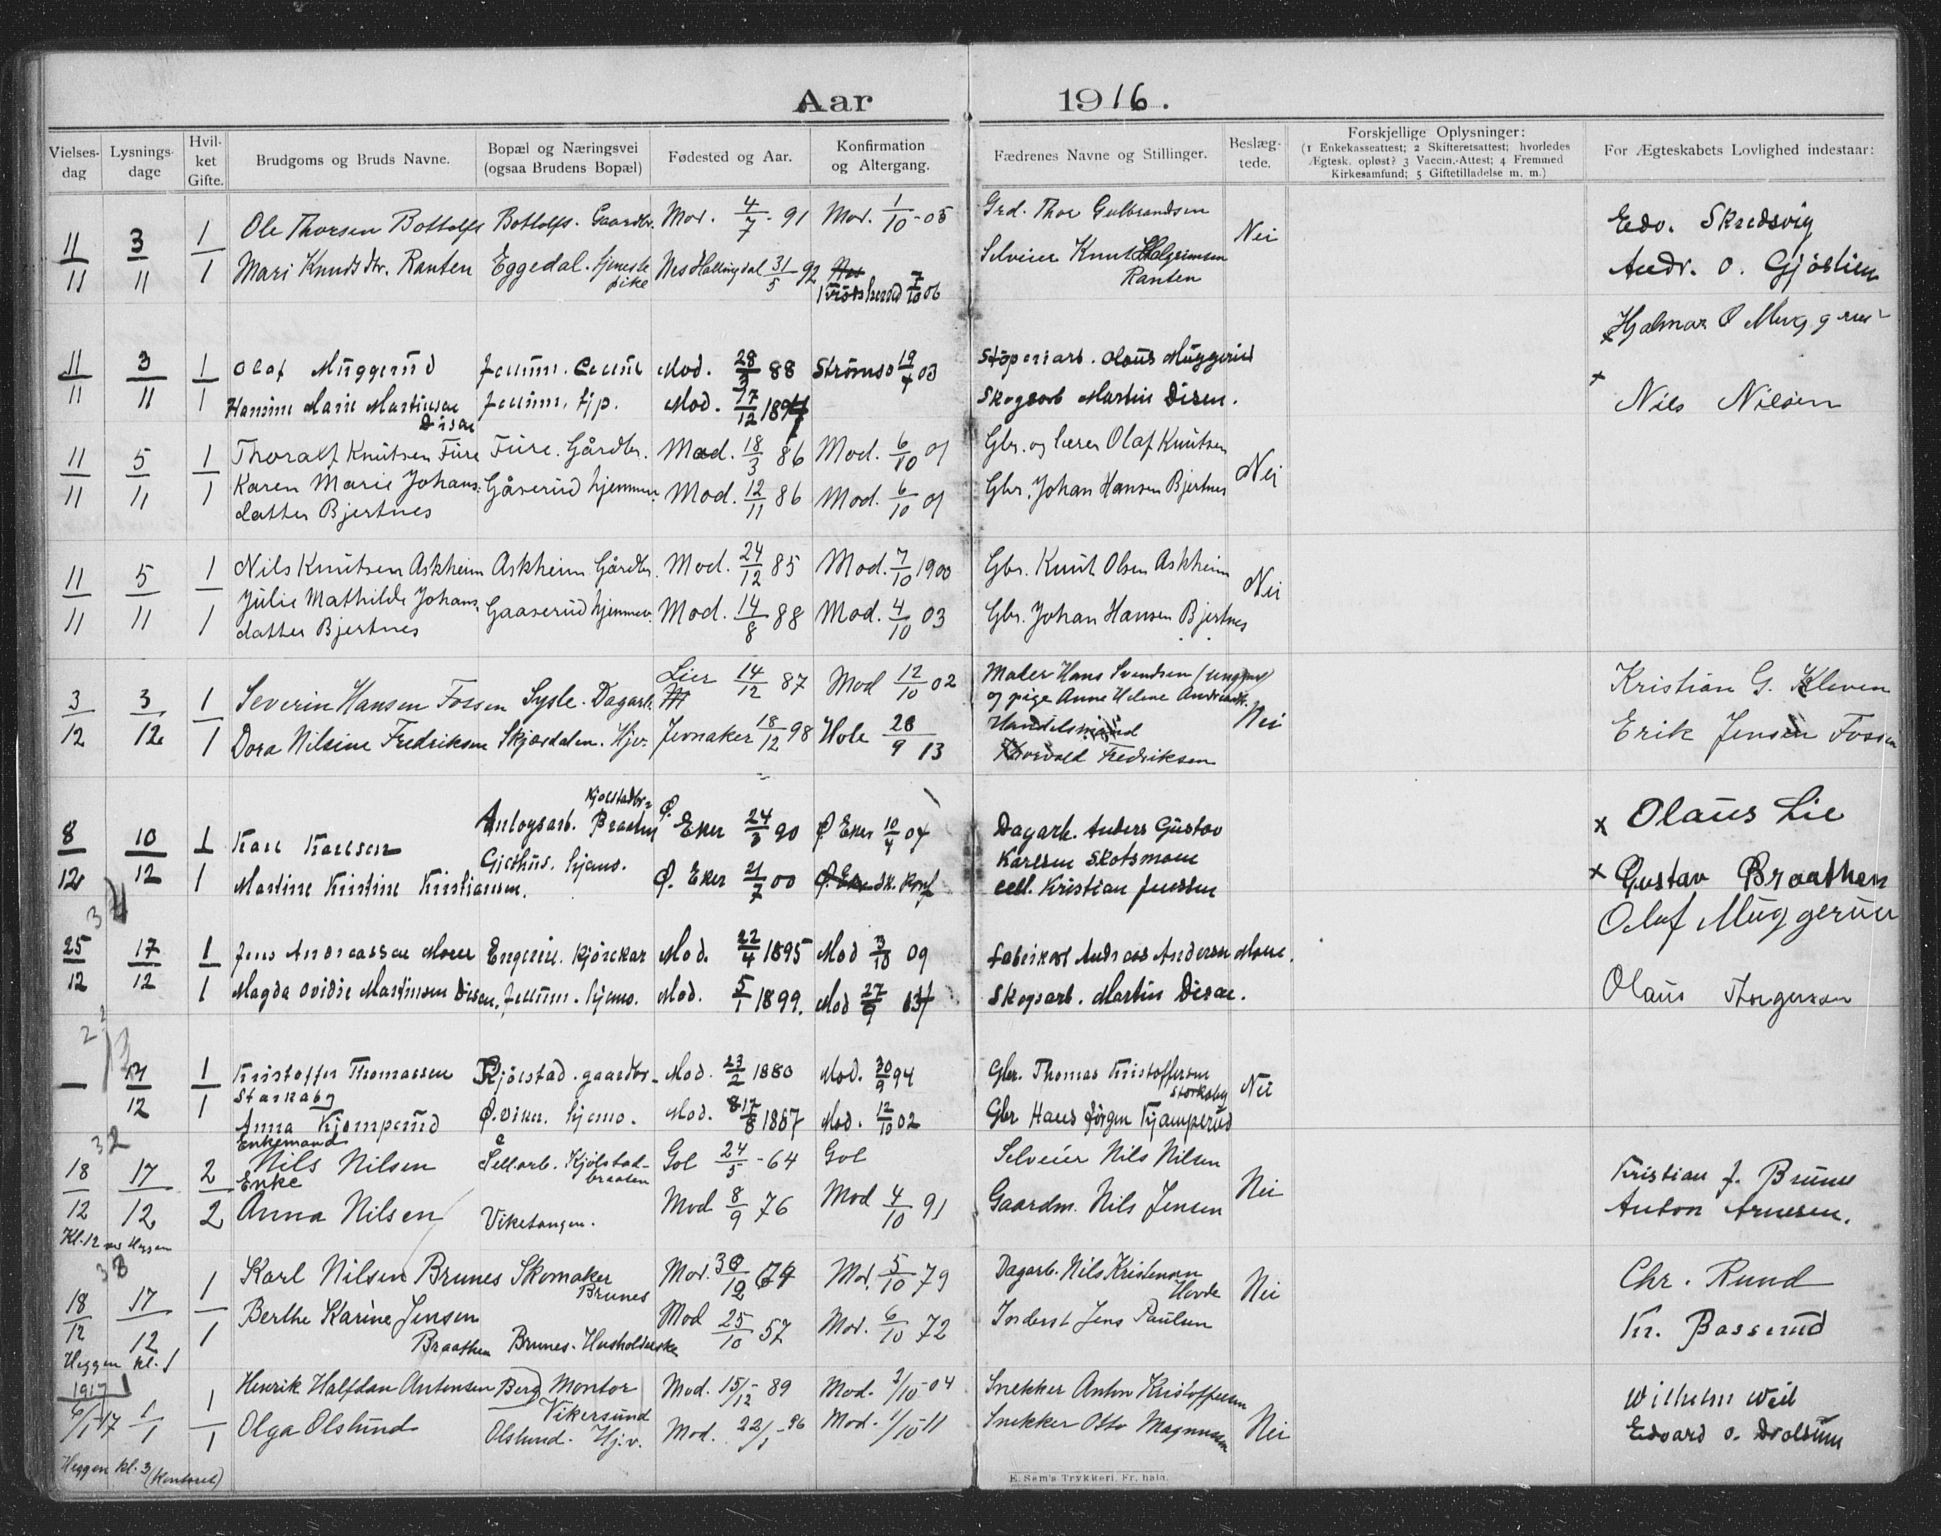 Aar 1916.
Vielses-dag
Lysnings-dage
Hvil-ket Gifte.
Brudgoms og Bruds Navne.
Bopæl og Næringsvei (ogsaa Brudens Bopæl)
Fødested og Aar.
Konfirmation og Altergang.
Fædrenes Navne og Stillinger.
Beslæg-tede.
Forskjellige Oplysninger: (1 Enkekasseattest; 2 Skifteretsattest; hvorledes Ægtesk. opløst? 3 Vaccin.-Attest; 4 Fremmed Kirkesamfund; 5 Giftetilladelse m. m.)
For Ægteskabets Lovlighed indestaar:
11/11 3/11 1 Ole Thorsen Bottolfs Bottolfs. Gaardbr. Mod. 4/7 - 91 Mod. 1/10 - 05 Grd. Thor Gulbrandsen Nei Edv. Skredsvig
1 Mari Knudsdtr. Ranten Eggedal. tjeneste pike Nes Hallingdal 31/5 92 Krødsherred 7/10 06 Selveier Knut Halgrimsen Ranten Andr. O. Gjöslien
Hjalmar O Muggerud
11/11 3/11 1 Olaf Muggerud Mod. 28/3 88 Strømsø 19/4 03 Støperiarb. Olaus Muggerud
1 Hansine Marie Martinsen Disen Mod. 17/12 1897 Skogsarb Martin Disen. Nils Nilsen
11/11 5/11 1 Thoralf Knutsen Fure Fure. Gårdbr. Mod. 18/3 86 Mod. 6/10 01 Gbr. og lærer Olaf Knutsen Nei
1 Karen Marie Johans: datter Bjertnes Gåserud hjemmev. Mod. 12/11 86 Mod. 6/10 01 Gbr. Johan Hansen Bjertnes
11/11 5/11 1 Nils Knutsen Askheim Askheim Gårdbr. Mod. 24/12 85 Mod. 7/10 1900 Gbr. Knut Olsen Askheim Nei
1 Julie Mathilde Johans. datter Bjertnes Gaaserud hjemmev. Mod. 14/8 88 Mod. 4/10 03 Gbr. Johan Hansen Bjertnes
3/12 3/12 1 Severin Hansen Fossen Sysle. Dagarb. Lier 14/12 87 Mod 12/10 02 Maler Hans Svendsen (ungkar) og pige Anne Helene Andreasdt. Nei Kristian G. Kleven
1 Dora Nilsine Fredriksen Skjærdalen. Hjv. Jevnaker 18/12 98 Hole 28/9 13 Handelsmand Thorvald Fredriksen Erik Jensen Fossen
8/12 10/12 1 Karl Karlsen Anlegsarb. Kjolstadbr. Braaten Ø. Eker 24/3 90 Ø. Eker 10/4 04 Dagarb. Anders Gustav Karlsen Skotsmoen x Olaus Lie
1 Martine Kristine Kristiansen. Gjethus. hjems. Ø. Eker 21/7 00 Ø. Eker sk. konf Kristian Jenssen x Gustav Braathen
Olaf Muggerud
25/12 17/12 1 Jens Andreassen Moen Engerin. Mod. 22/4 1895 Mod 3/10 09 fabrikarb Andreas Andersen Moen.
1 Magda Ovidie Martinsen Disen. hjems. Mod. 5/1 1899. Mod 27/9 Skogsarb. Martin Disen. Olaus Thorgersen
12 1 Kristoffer Thomassen Storkaby Kjølstad. gaardbr. Mod. 23/2 1880 Mod. 30/9 94 Gbr. Thomas Kristoffersen Storkaby Nei
1 Anna Kjemperud Ø. viker. hjems. Mod. 1887 Mod. 12/10 02 Gbr Hans Jörgen Kjæmperud
18/12 17/12 2 Enkemand Nils Nilsen Kjölstad-braaten Gol 24/5 - 64 Gol Selveier Nils Nilsen Nei Kristian J. Brunes
2 Enke Anna Nilsen Viketangen. Mod 8/9 76 Mod 4/10 91 Gaardm. Nils Jensen Anton Arnesen.
Kl. 12 ved Heggen
18/12 17/12 1 Karl Nilsen Brunes Skomaker Brunes Mod. Mod. 5/10 79 Dagarb. Nils Kristensen Hovde Nei Chr. Rund
1 Berthe Karine Jensen Braathen Brunes. Husholderske Mod 25/10 57 Mod. 6/10 72 Inderst Jens Paulsen Kr. Basserud
Heggen kl. 1
1917
6/1 17 1/1 1 Henrik Halfdan Antonsen Berg Montør Vikersund Mod. 15/12 - 89 Mod. 2/10 - 04 Snekker Anton Kristoffersen Nei Wilhelm Weil
1 Olga Olslund Olslund. Hj.v. Mod. 22/1 - 96 Mod. 1/10 - 11 Snekker Otto Magnussen Edvard O. Drolsum
Heggen kl. 3 (Kontoret)
E. Sem's Trykkeri, Fr. hald.